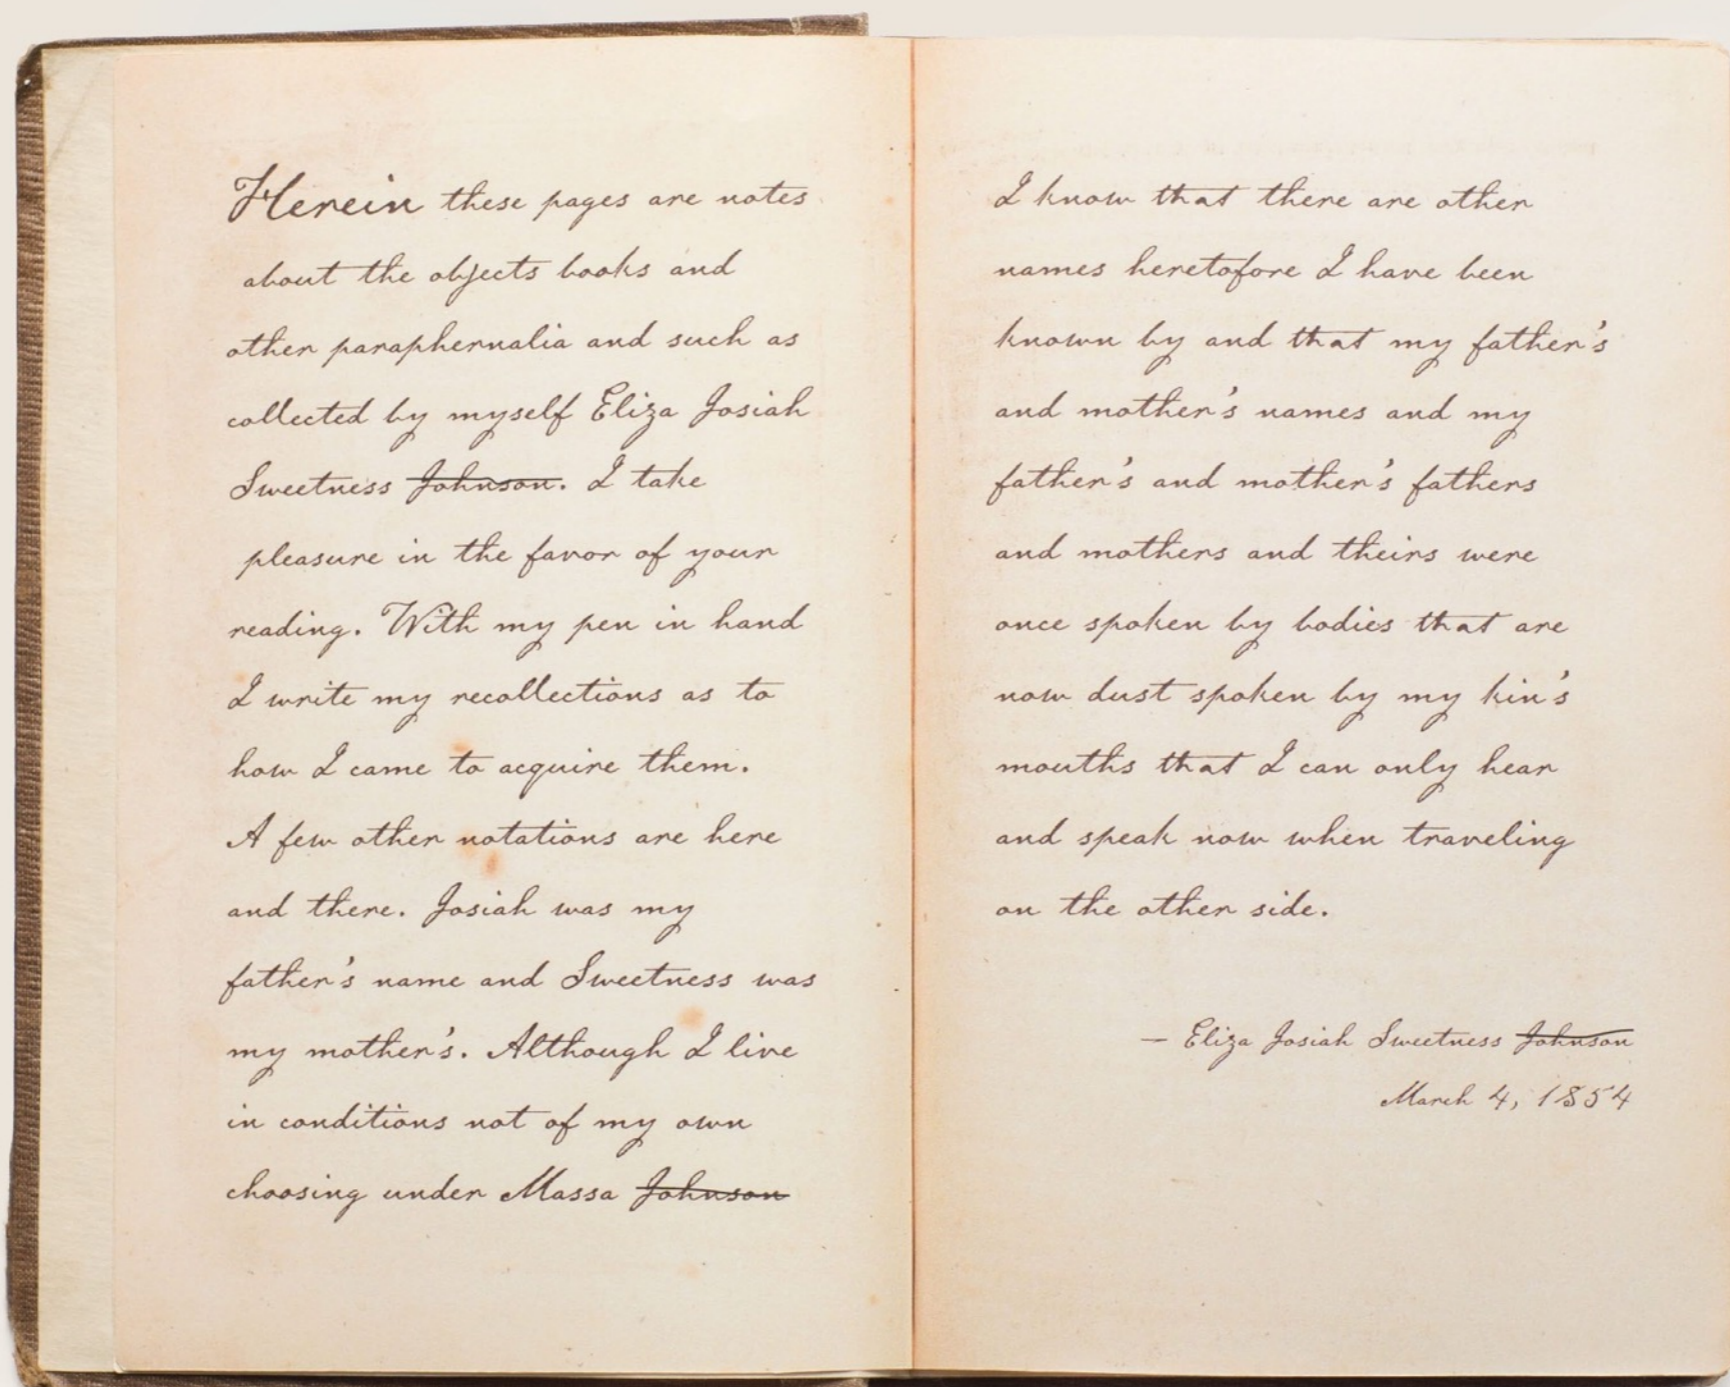 Herein these pages are notes
about the objects books and
other paraphernalia and such as
collected by myself Eliza Josiah
Sweetness Johnson. I take
pleasure in the favor of your
reading. With my pen in hand
I write my recollections as to
how I came to acquire them.
A few other notations are here
and there. Josiah was my
father's name and Sweetness was
my mother's. Although I live
in conditions not of my own
choosing under Massa Johnson
I know that there are other
names heretofore I have been
known by and that my father's
and mother's names and my
father's and mother's fathers
and mothers and theirs were
once spoken by bodies that are
now dust spoken by my kin's
mouths that I can only hear
and speak now when traveling
on the other side.
— Eliza Josiah Sweetness Johnson
March 4, 1854